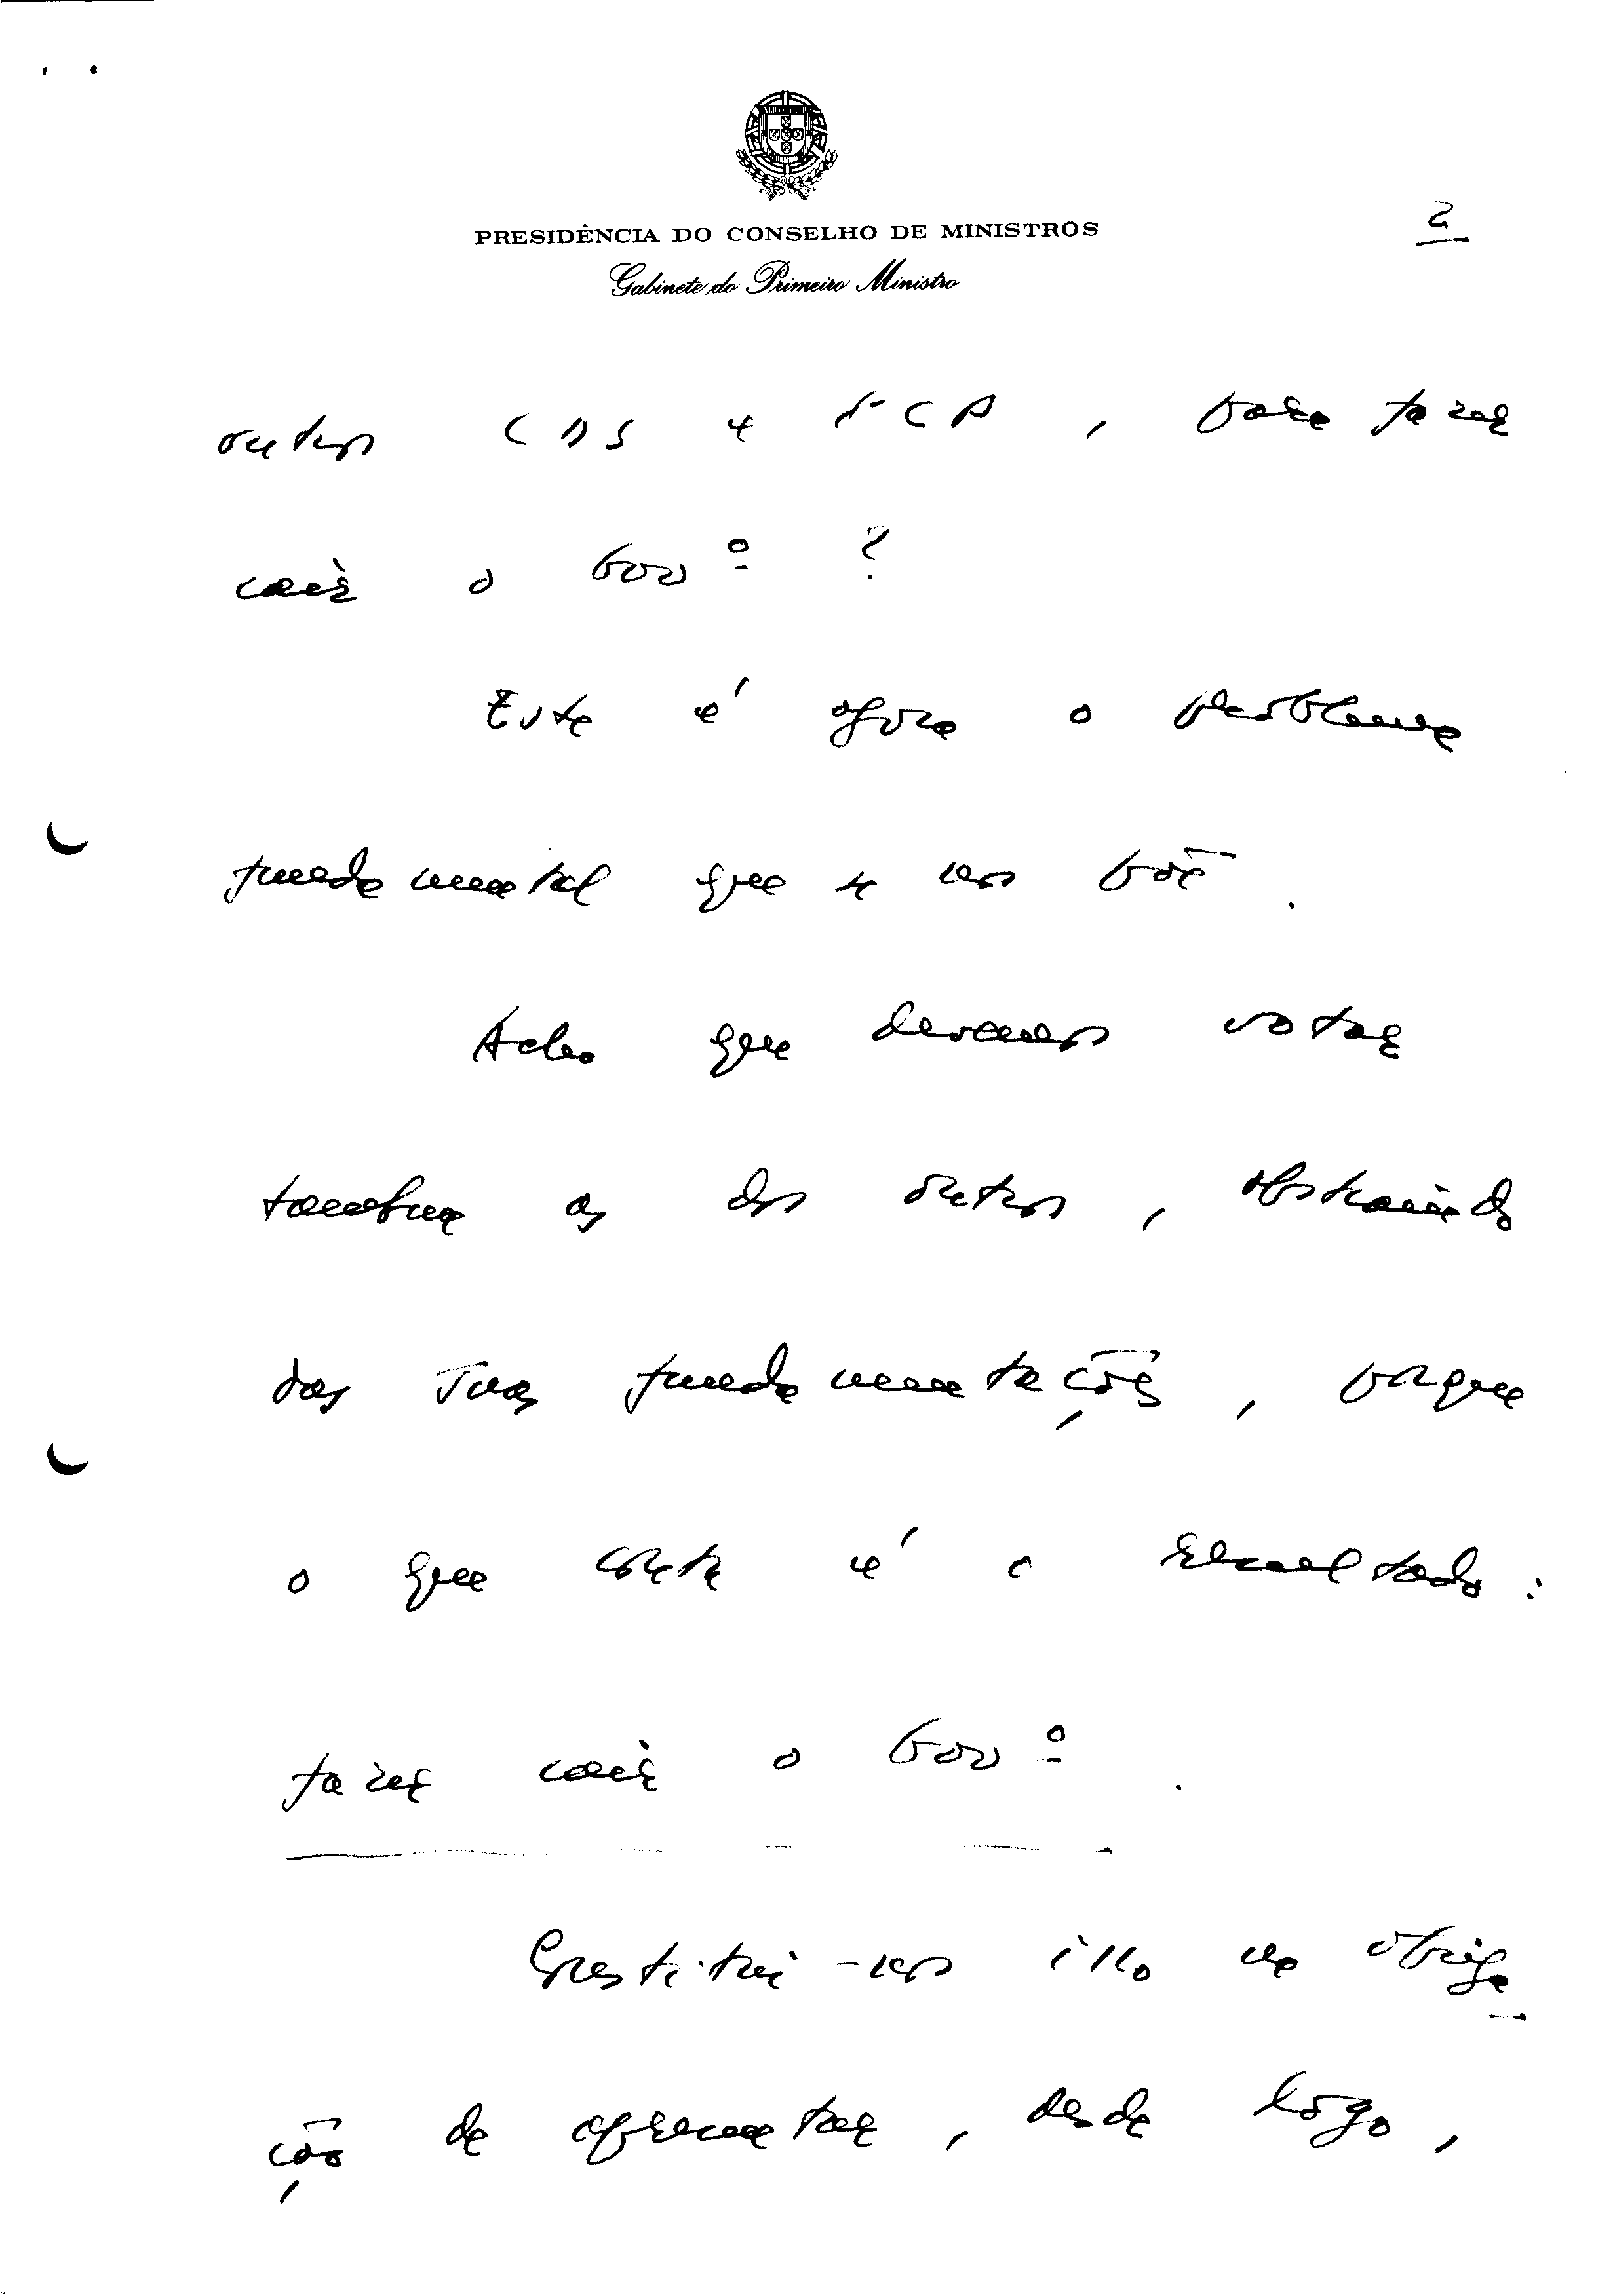 PRESIDÊNCIA DO CONSELHO DE MINISTROS
Gabinete do Primeiro Ministro
2
outros CDS e PCP, para fazer
cair o Govº ?
Este é agora o problema
fundamental que se nos põe.
Acho que devemos votar
também as dos outros, abstraindo
das suas fundamentações, porque
o que conta é o resultado:
fazer cair o Govº.
Constitui-nos isso na obriga
ção de apresentar, desde logo,